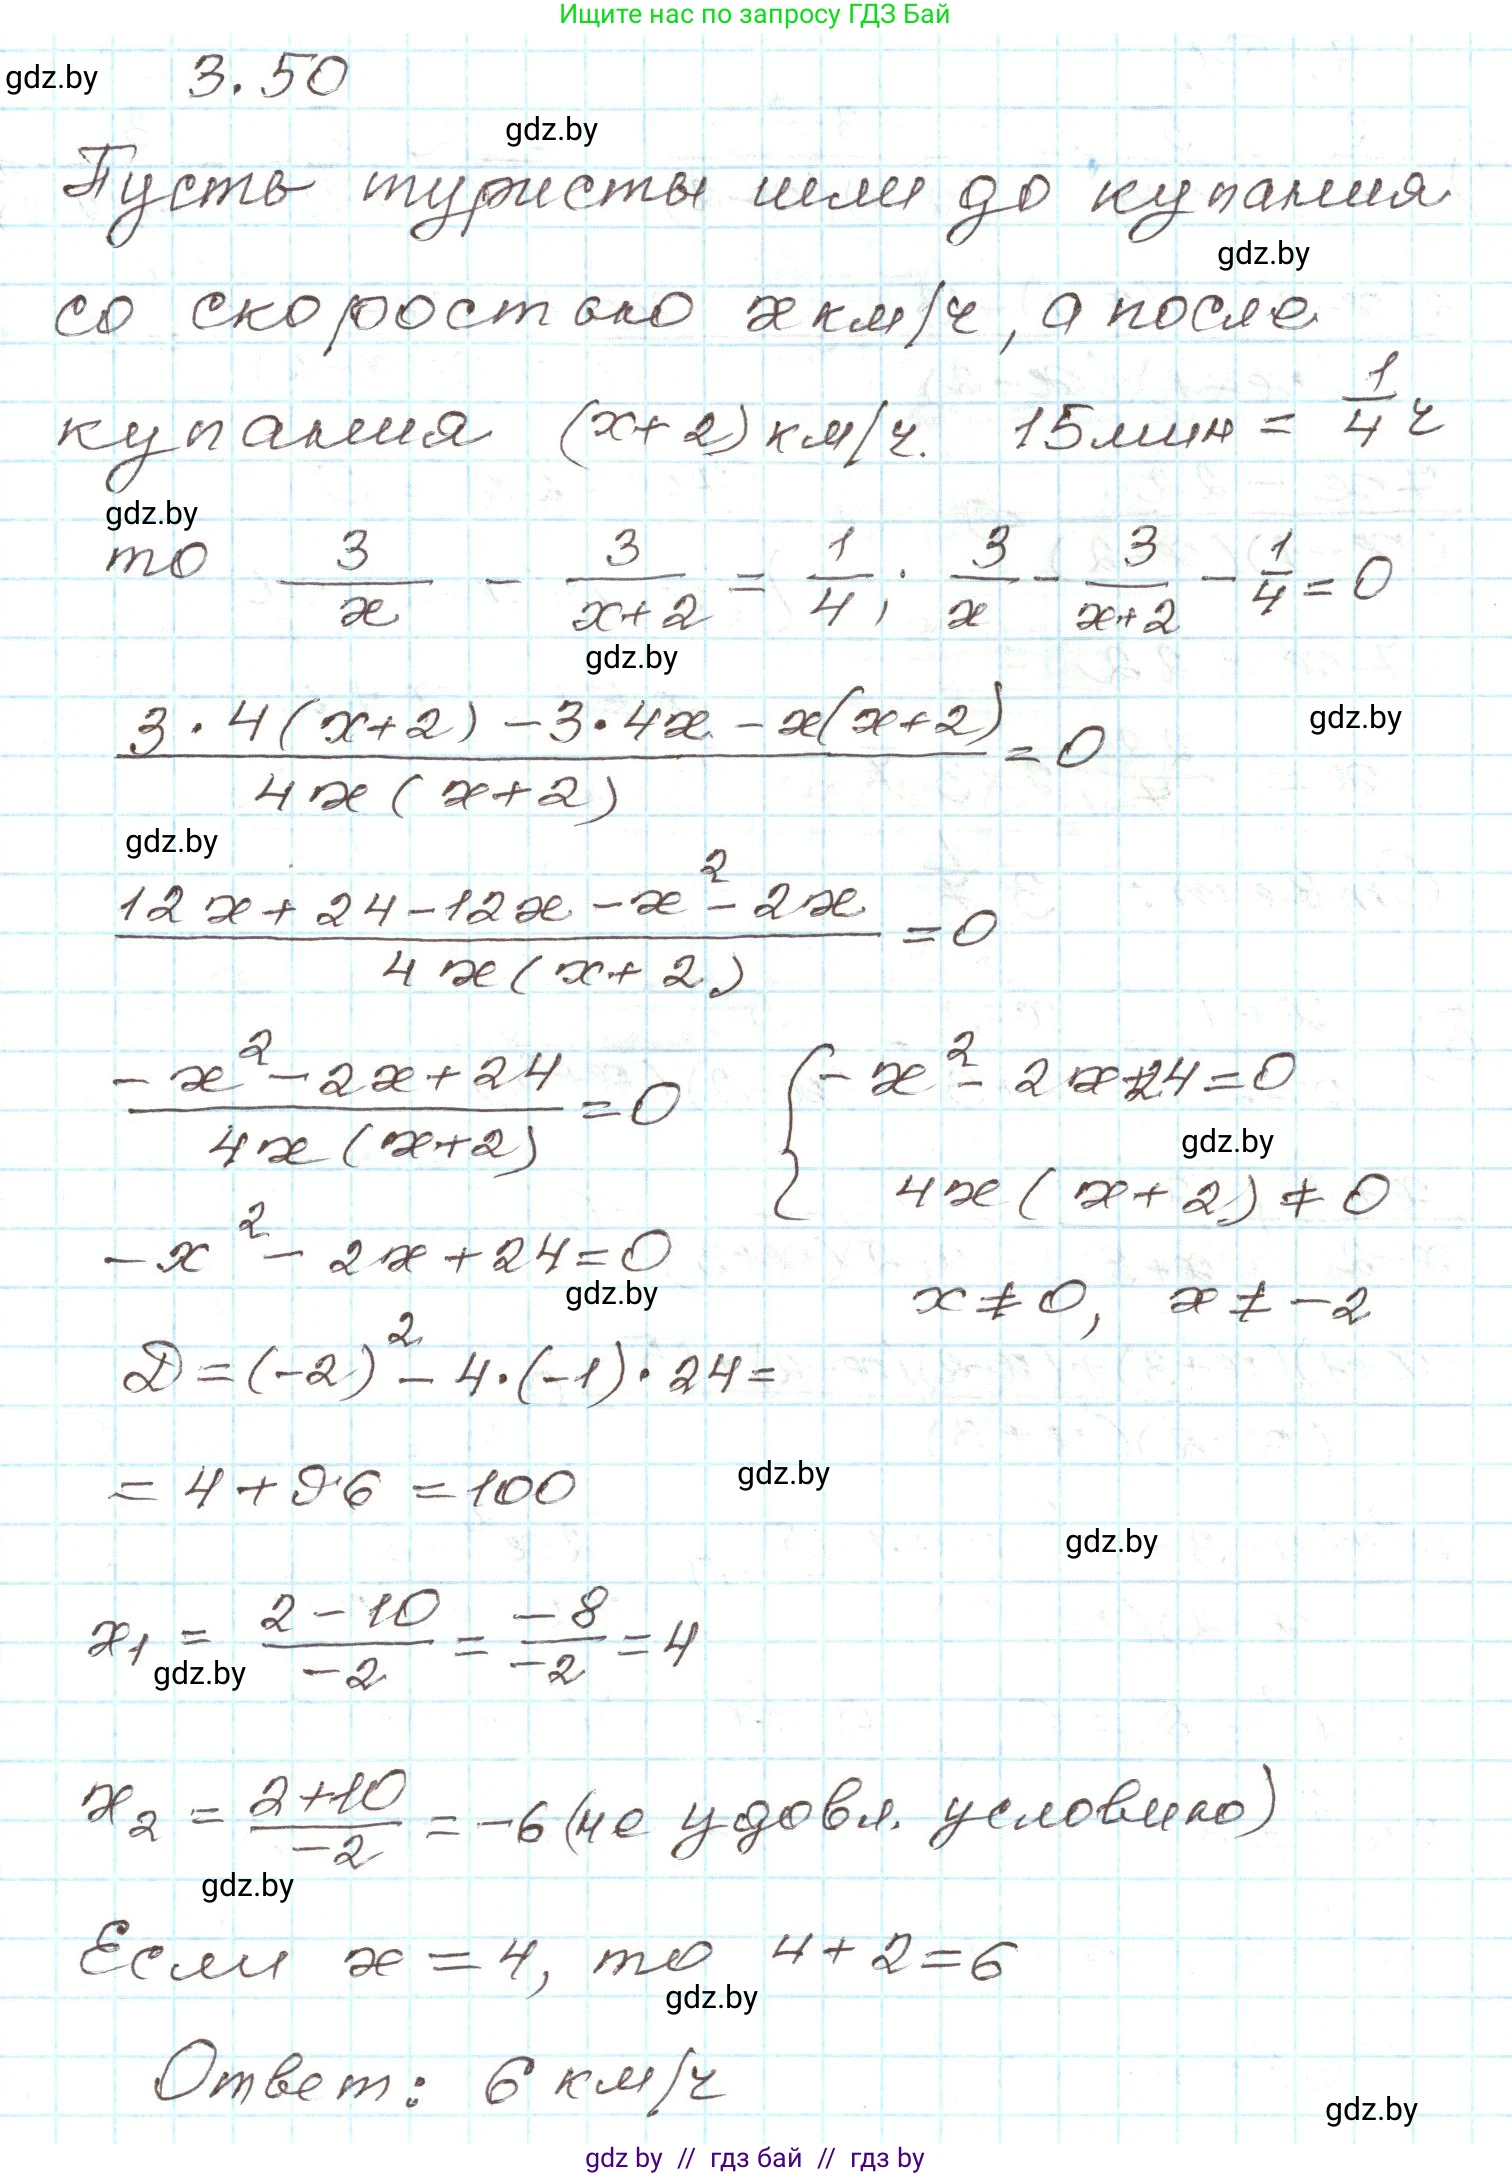 Ищите нас по запросу ГДЗ Бай
gdz.by 3.50
gdz.by
Пусть туристы шли до купания
gdz.by
со скоростью x км/ч, а после
купания (x+2) км/ч. 15 мин = 1/4 ч
gdz.by
то 3/x - 3/(x+2) = 1/4; 3/x - 3/(x+2) - 1/4 = 0
gdz.by
(3·4(x+2) - 3·4x - x(x+2))/(4x(x+2)) = 0
gdz.by
gdz.by
(12x + 24 - 12x - x² - 2x)/(4x(x+2)) = 0
(-x² - 2x + 24)/(4x(x+2)) = 0 { -x² - 2x + 24 = 0
gdz.by
4x(x+2) ≠ 0
-x² - 2x + 24 = 0
gdz.by
x ≠ 0, x ≠ -2
D = (-2)² - 4·(-1)·24 =
= 4 + 96 = 100
gdz.by
gdz.by
x₁ = (2-10)/(-2) = (-8)/(-2) = 4
gdz.by
x₂ = (2+10)/(-2) = -6 (не удовл. условию)
gdz.by
Если x = 4, то 4 + 2 = 6
gdz.by
Ответ: 6 км/ч
gdz.by
gdz by // гдз бай // гдз by